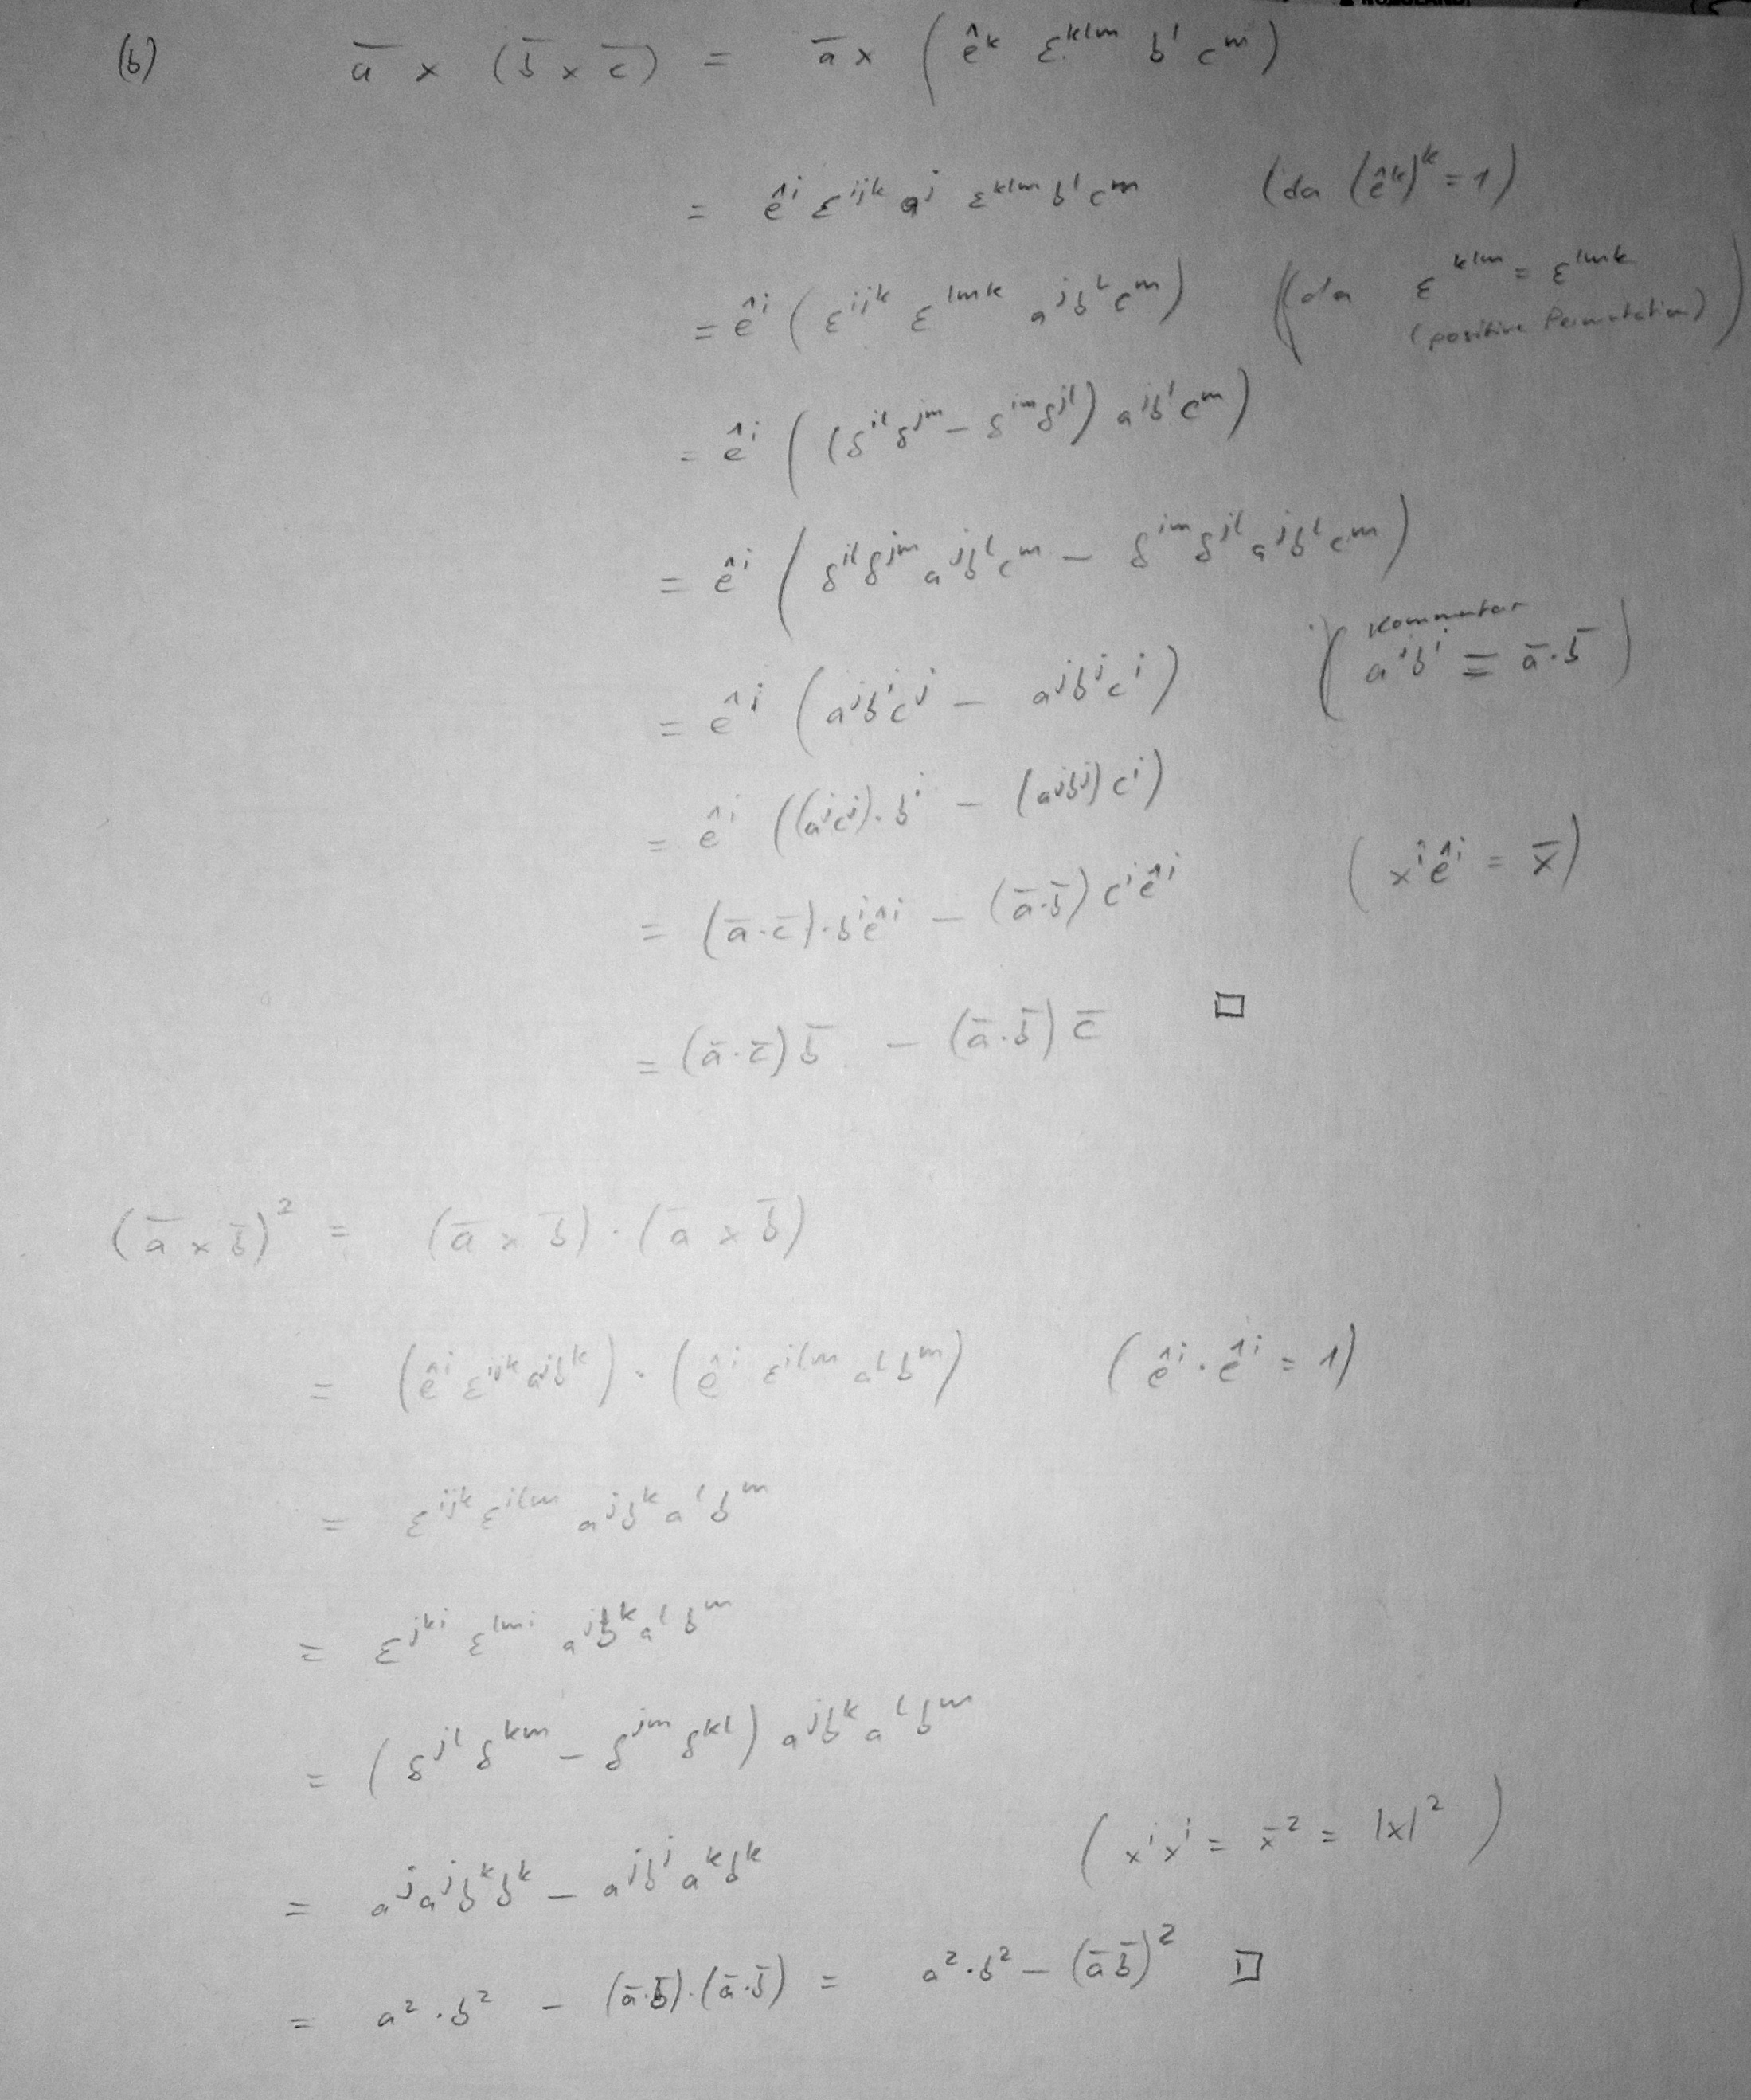 (b) ā × (b̄ × c̄) = ā × ( êᵏ εᵏˡᵐ bˡ cᵐ )
= êⁱ εⁱʲᵏ aʲ εᵏˡᵐ bˡ cᵐ (da (êᵏ)ᵏ = 1)
= êⁱ ( εⁱʲᵏ εˡᵐᵏ aʲ bˡ cᵐ ) (da εᵏˡᵐ = εˡᵐᵏ
(positive Permutation) )
= êⁱ ( (δⁱˡ δʲᵐ − δⁱᵐ δʲˡ) aʲ bˡ cᵐ )
= êⁱ ( δⁱˡ δʲᵐ aʲ bˡ cᵐ − δⁱᵐ δʲˡ aʲ bˡ cᵐ )
Kommentar
= êⁱ ( aʲ bⁱ cʲ − aʲ bʲ cⁱ ) ( aⁱ bⁱ ≡ ā · b̄ )
= êⁱ ( (aʲcʲ) · bⁱ − (aʲbʲ) cⁱ )
= (ā · c̄) · bⁱ êⁱ − (ā · b̄) cⁱ êⁱ ( xⁱ êⁱ = x̄ )
= (ā · c̄) b̄ − (ā · b̄) c̄ □
(ā × b̄)² = (ā × b̄) · (ā × b̄)
= ( êⁱ εⁱʲᵏ aʲ bᵏ ) · ( êⁱ εⁱˡᵐ aˡ bᵐ ) ( êⁱ · êⁱ = 1 )
= εⁱʲᵏ εⁱˡᵐ aʲ bᵏ aˡ bᵐ
= εʲᵏⁱ εˡᵐⁱ aʲ bᵏ aˡ bᵐ
= ( δʲˡ δᵏᵐ − δʲᵐ δᵏˡ ) aʲ bᵏ aˡ bᵐ
= aʲ aʲ bᵏ bᵏ − aʲ bʲ aᵏ bᵏ ( xⁱ xⁱ = x̄² = |x|² )
= a² · b² − (ā · b̄) · (ā · b̄) = a² · b² − (ā b̄)² □